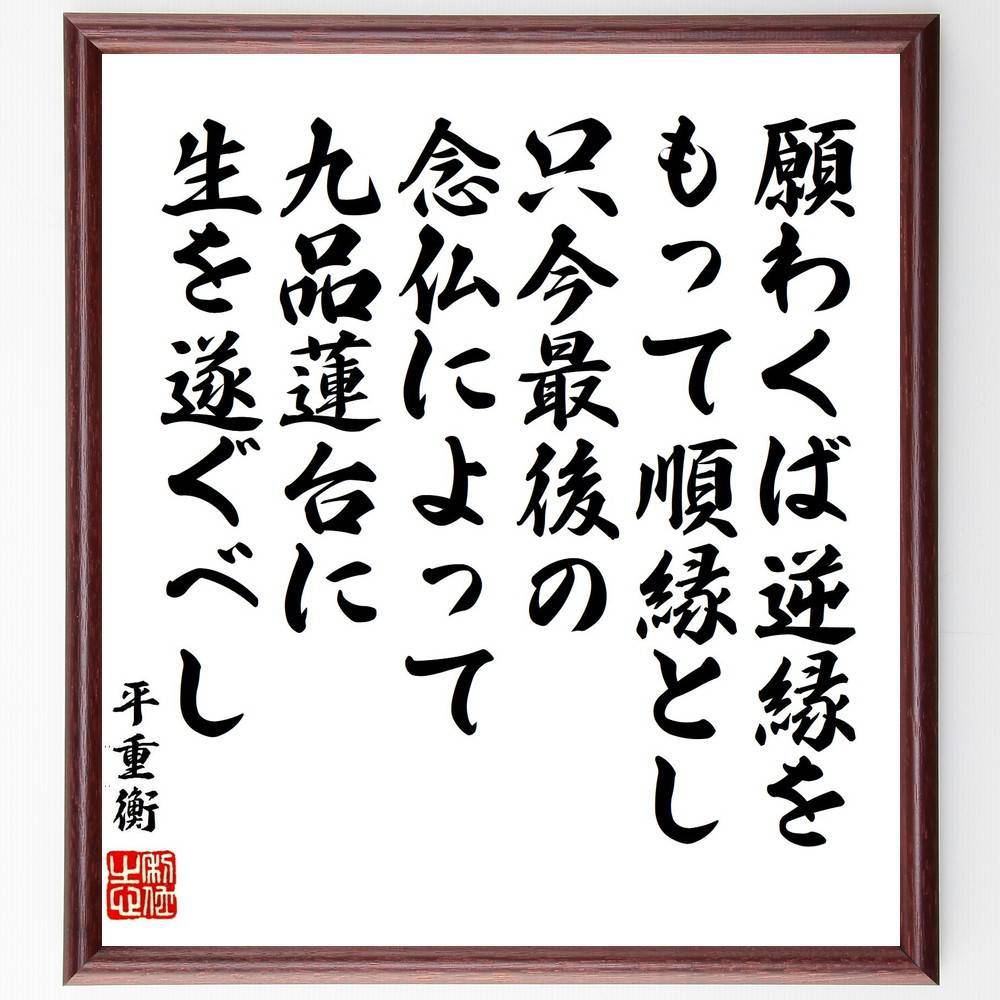 願わくば逆縁を
もって順縁とし
只今最後の
念仏によって
九品蓮台に
生を遂ぐべし
平重衡